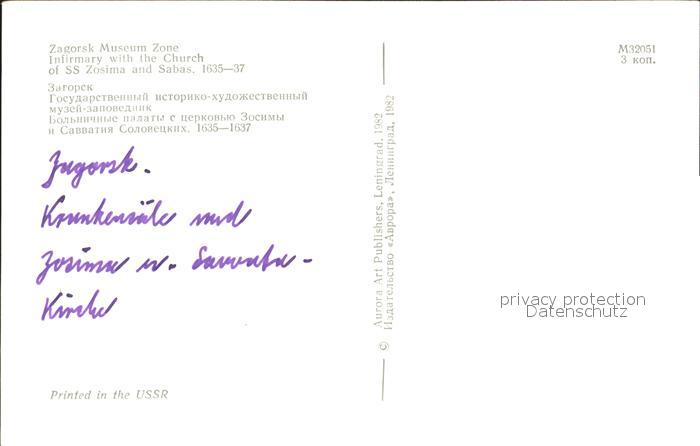 Zagorsk Museum Zone
Infirmary with the Church
of SS Zosima and Sabas, 1635—37
Загорск
Государственный историко-художественный
музей-заповедник
Больничные палаты с церковью Зосимы
и Савватия Соловецких. 1635—1637
Zagorsk.
Krankensäle und
Zosima u. Savvata-
Kirche
Printed in the USSR
© Aurora Art Publishers, Leningrad, 1982
Издательство «Аврора», Ленинград, 1982
M32051
3 коп.
privacy protection
Datenschutz